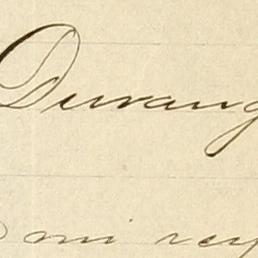 Durang
mi rey